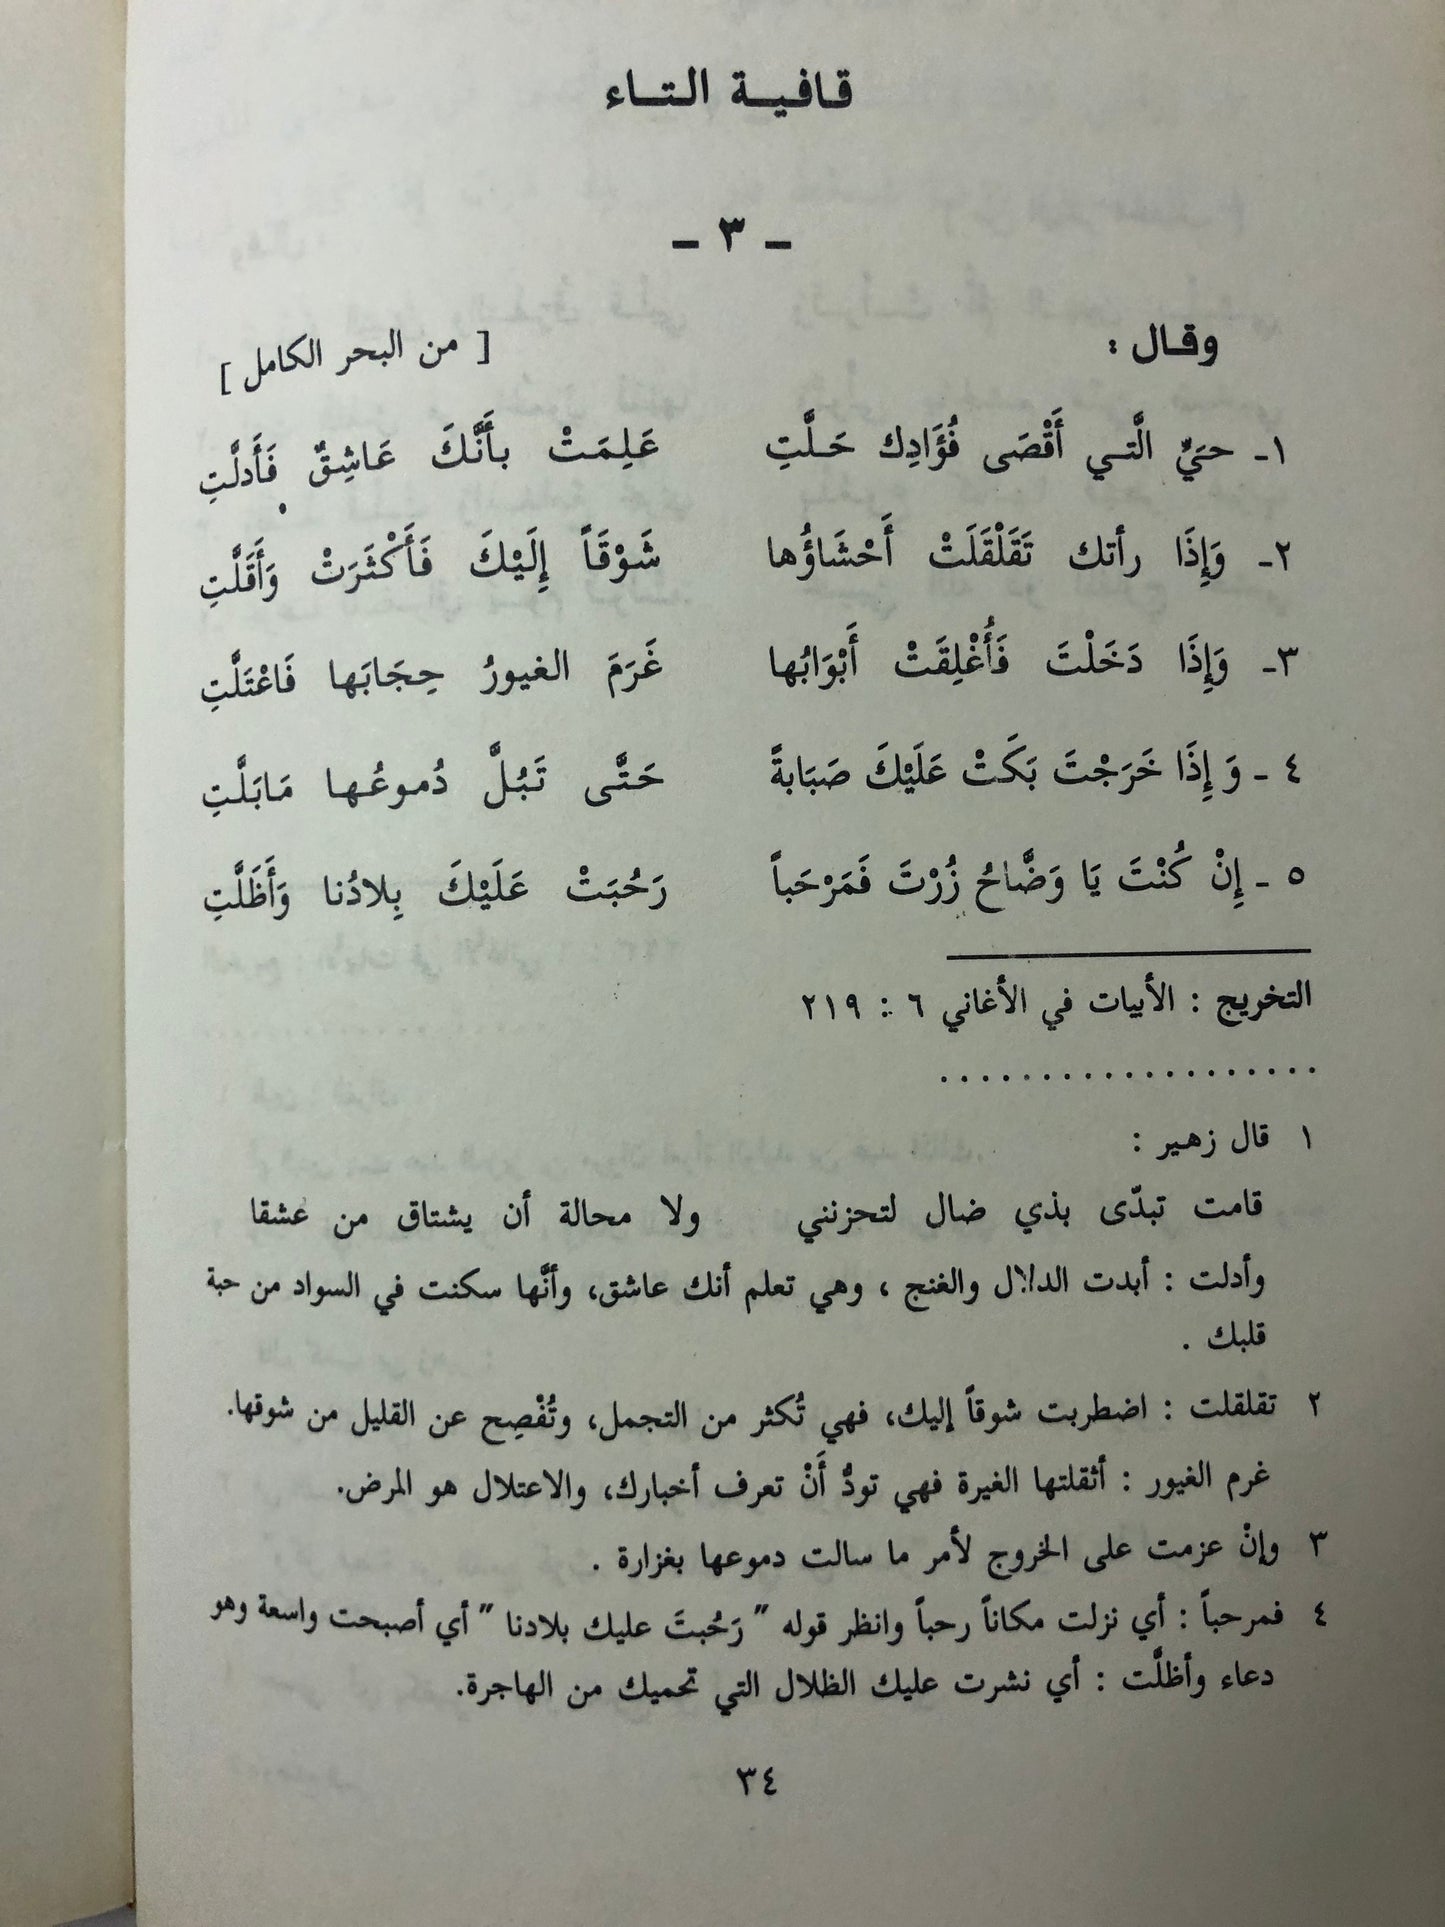 قافية التاء
- ٣ -
وقال :
[ من البحر الكامل ]
١- حَيِّ الَّتي أَقْصَى فُؤَادِك حَلَّتِ عَلِمَتْ بأَنَّكَ عَاشِقٌ فَأَدلَّتِ
٢- وَإِذَا رأتك تَقَلْقَلَتْ أَحْشَاؤُها شَوْقَاً إِلَيْكَ فَأَكْثَرَتْ وَأَقَلَّتِ
٣- وَإِذَا دَخَلْتَ فَأُغْلِقَتْ أَبْوَابُها غَرَمَ الغيورُ حِجَابَها فَاعْتَلَّتِ
٤ - وَ إِذَا خَرَجْتَ بَكَتْ عَلَيْكَ صَبَابةً حَتَّى تَبُلَّ دُموعُها مَابَلَّتِ
٥ - إِنْ كُنْتَ يَا وَضَّاحُ زُرْتَ فَمَرْحَباً رَحُبَتْ عَلَيْكَ بِلادُنا وَأَظَلَّتِ
التخريج : الأبيات في الأغاني ٦ : ٢١٩
....................
١ قال زهير :
قامت تبدّى بذي ضال لتحزنني ولا محالة أن يشتاق من عشقا
وأدلت : أبدت الدلال والغنج ، وهي تعلم أنك عاشق، وأنَّها سكنت في السواد من حبة
قلبك .
٢ تقلقلت : اضطربت شوقاً إليك، فهي تُكثر من التجمل، وتُفْصِح عن القليل من شوقها.
غرم الغيور : أثقلتها الغيرة فهي تودُّ أَنْ تعرف أخبارك، والاعتلال هو المرض.
٣ وإنْ عزمت على الخروج لأمر ما سالت دموعها بغزارة .
٤ فمرحباً : أي نزلت مكاناً رحباً وانظر قوله " رَحُبتَ عليك بلادنا " أي أصبحت واسعة وهو
دعاء وأظلَّت : أي نشرت عليك الظلال التي تحميك من الهاجرة.
٣٤